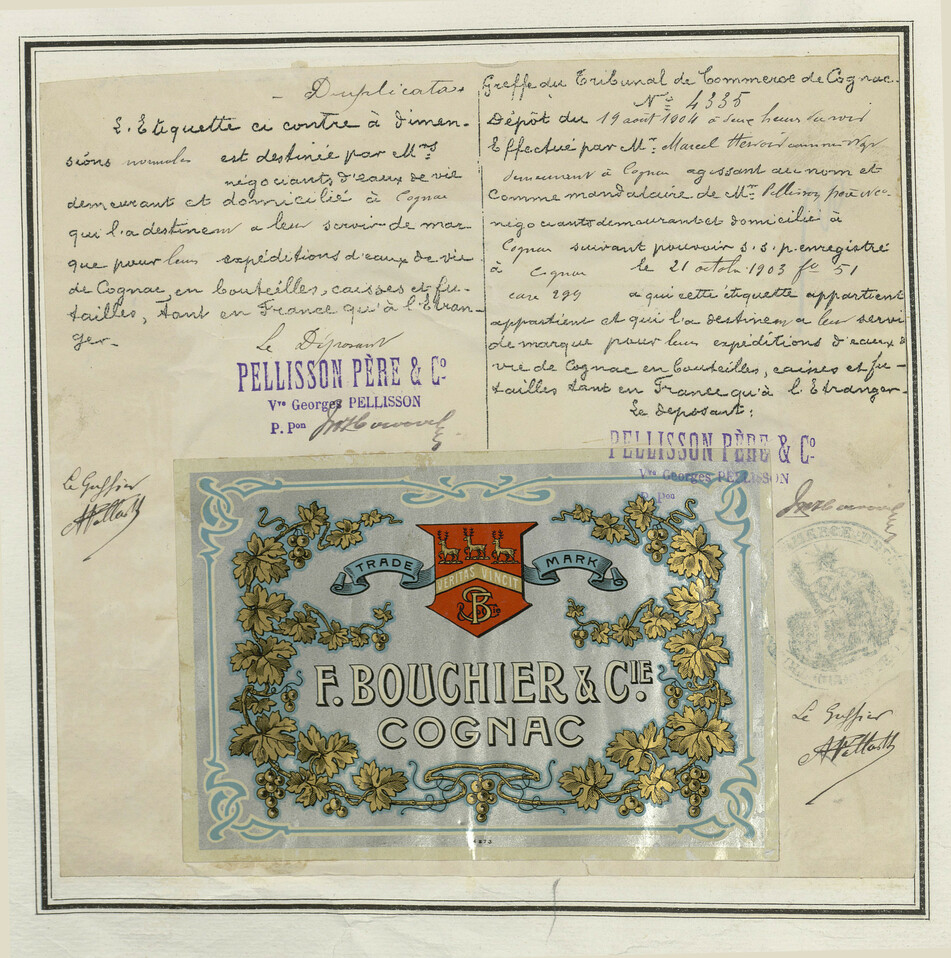 Duplicata
L'Etiquette ci contre à dimen-
sions normales est destinée par Mrs
négociants d'eaux de vie
demeurant et domicilié à Cognac
qui l'a destinent a leur servir de mar-
que pour leurs expéditions d'eaux de vie
de Cognac, en bouteilles, caisses et fu-
tailles, tant en France qu'à l'Etran-
ger.
Le Déposant
PELLISSON PÈRE & Co
Vve Georges PELLISSON
P. Pon
Greffe du Tribunal de Commerce de Cognac.
No 4335
Dépôt du 19 août 1904 à deux heures du soir
Effectué par Mr. Marcel
demeurant à Cognac agissant au nom et
comme mandataire de Mrs Pellisson père & Co
négociants demeurant et domicilié à
Cognac suivant pouvoir s.s.p. enregistré
à Cognac le 21 octobre 1903 fo 51
case 299 a qui cette étiquette appartient
appartient et qui l'a destinent a leur servi
de marque pour leurs expéditions d'eaux d
vie de Cognac en bouteilles, caisses et fu-
tailles tant en France qu'à l'Etranger
Le déposant:
PELLISSON PÈRE & Co
Vve Georges PELLISSON
P. Pon
Le Greffier
TRADE MARK
VERITAS VINCIT
F. BOUCHIER & CIE
COGNAC
Le Greffier